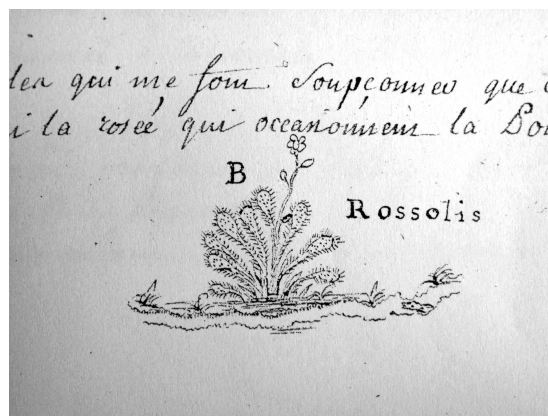 qui me font Soupçonner que
la rosée qui occasionnent la
B
Rossolis